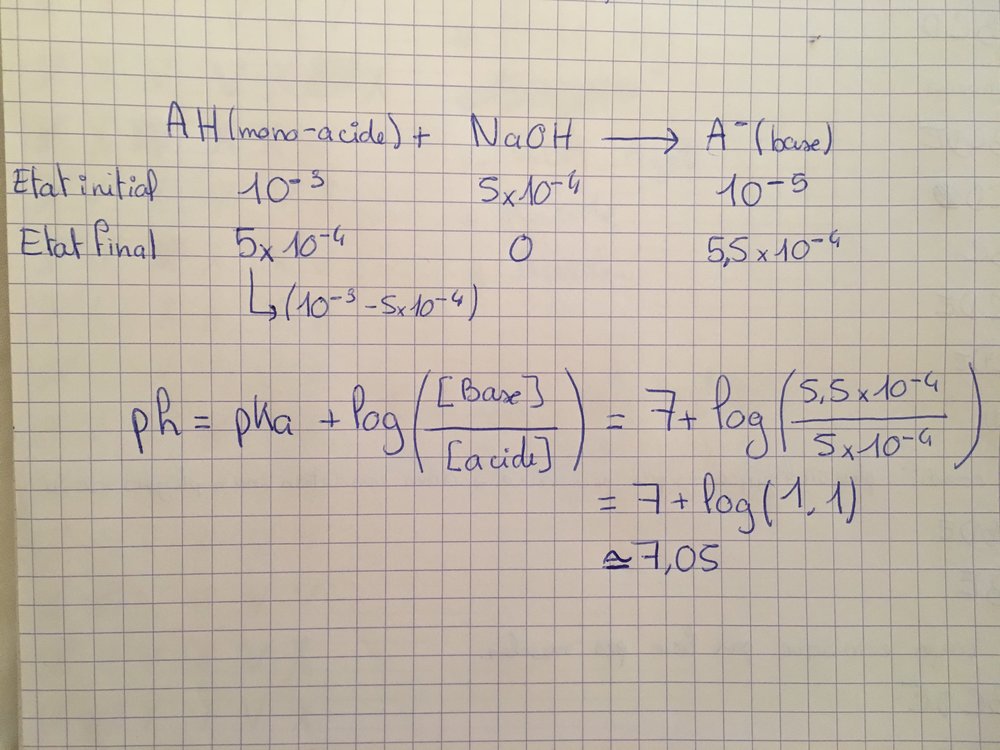 AH (mono-acide) + NaOH ⟶ A⁻ (base)
Etat initial 10⁻³ 5x10⁻⁴ 10⁻⁵
Etat final 5x10⁻⁴ 0 5,5x10⁻⁴
↳ (10⁻³ - 5x10⁻⁴)
ph = pKa + log([Base]/[acide]) = 7 + log(5,5x10⁻⁴/5x10⁻⁴)
= 7 + log(1,1)
≃ 7,05